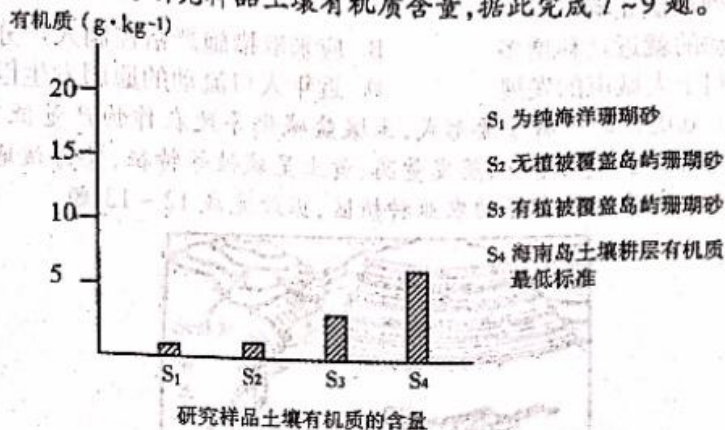 研究样品土壤有机质含量,据此完成7~9题。
有机质(g·kg⁻¹)
20
15
10
5
S₁ 为纯海洋珊瑚砂
S₂ 无植被覆盖岛屿珊瑚砂
S₃ 有植被覆盖岛屿珊瑚砂
S₄ 海南岛土壤耕层有机质
最低标准
S₁ S₂ S₃ S₄
研究样品土壤有机质的含量